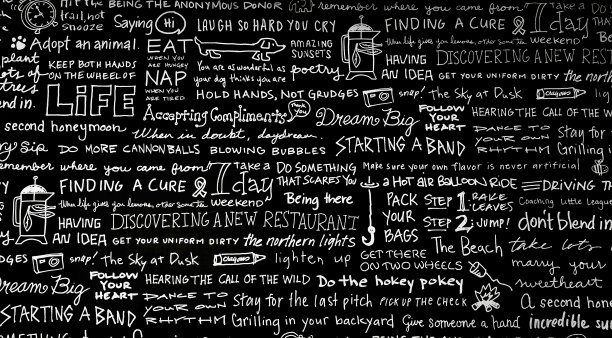 Hit the BEING THE ANONYMOUS DONOR
trail, not
snooze
Saying Hi
LAUGH SO HARD YOU CRY
remember where you came from
take a
7 day
weekend
DO SOMETHING
THAT SCARES YOU
FINDING A CURE
When life gives you lemons, other some to
Being there
Adopt an animal.
EAT
WHEN YOU
ARE HUNGRY
NAP
WHEN YOU
ARE TIRED
AMAZING
SUNSETS
poetry
You are as wonderful as
your dog thinks you are
HAVING DISCOVERING A NEW RESTAURANT
AN IDEA GET YOUR UNIFORM DIRTY the northern
plant
lots of
trees
KEEP BOTH HANDS
ON THE WHEEL OF
LiFE
HOLD HANDS, NOT GRUDGES
snap! The Sky at Dusk
crayons
end in.
Accepting Compliments
Thank you
Dream Big
FOLLOW
YOUR
HEART
HEARING THE CALL OF THE WILD
second honeymoon.
When in doubt, daydream.
STARTING A BAND
DANCE TO
YOUR OWN
RHYTHM
Stay for
Grilling in
DO MORE CANNONBALLS BLOWING BUBBLES
remember where you came from
take a
7 day
weekend
DO SOMETHING
THAT SCARES YOU
Make sure your own flavor is never artificial
FINDING A CURE
a HOT AIR BALLOON RIDE
DRIVING
When life gives you lemons, other some to
Being there
PACK
YOUR
BAGS
STEP 1 RAKE
LEAVES
STEP 2: JUMP!
Coaching Little League
don't blend in
HAVING DISCOVERING A NEW RESTAURANT
AN IDEA GET YOUR UNIFORM DIRTY the northern lights
GET THERE
ON TWO WHEELS
The Beach
take lots
snap! The Sky at Dusk
crayons
lighten up
marry your
sweetheart
Dream Big
FOLLOW
YOUR
HEART
HEARING THE CALL OF THE WILD
Do the hokey pokey
STARTING A BAND
DANCE TO
YOUR OWN
RHYTHM
Stay for the last pitch
PICK UP THE CHECK
A second honey
Grilling in your backyard
Give someone a hand
incredible